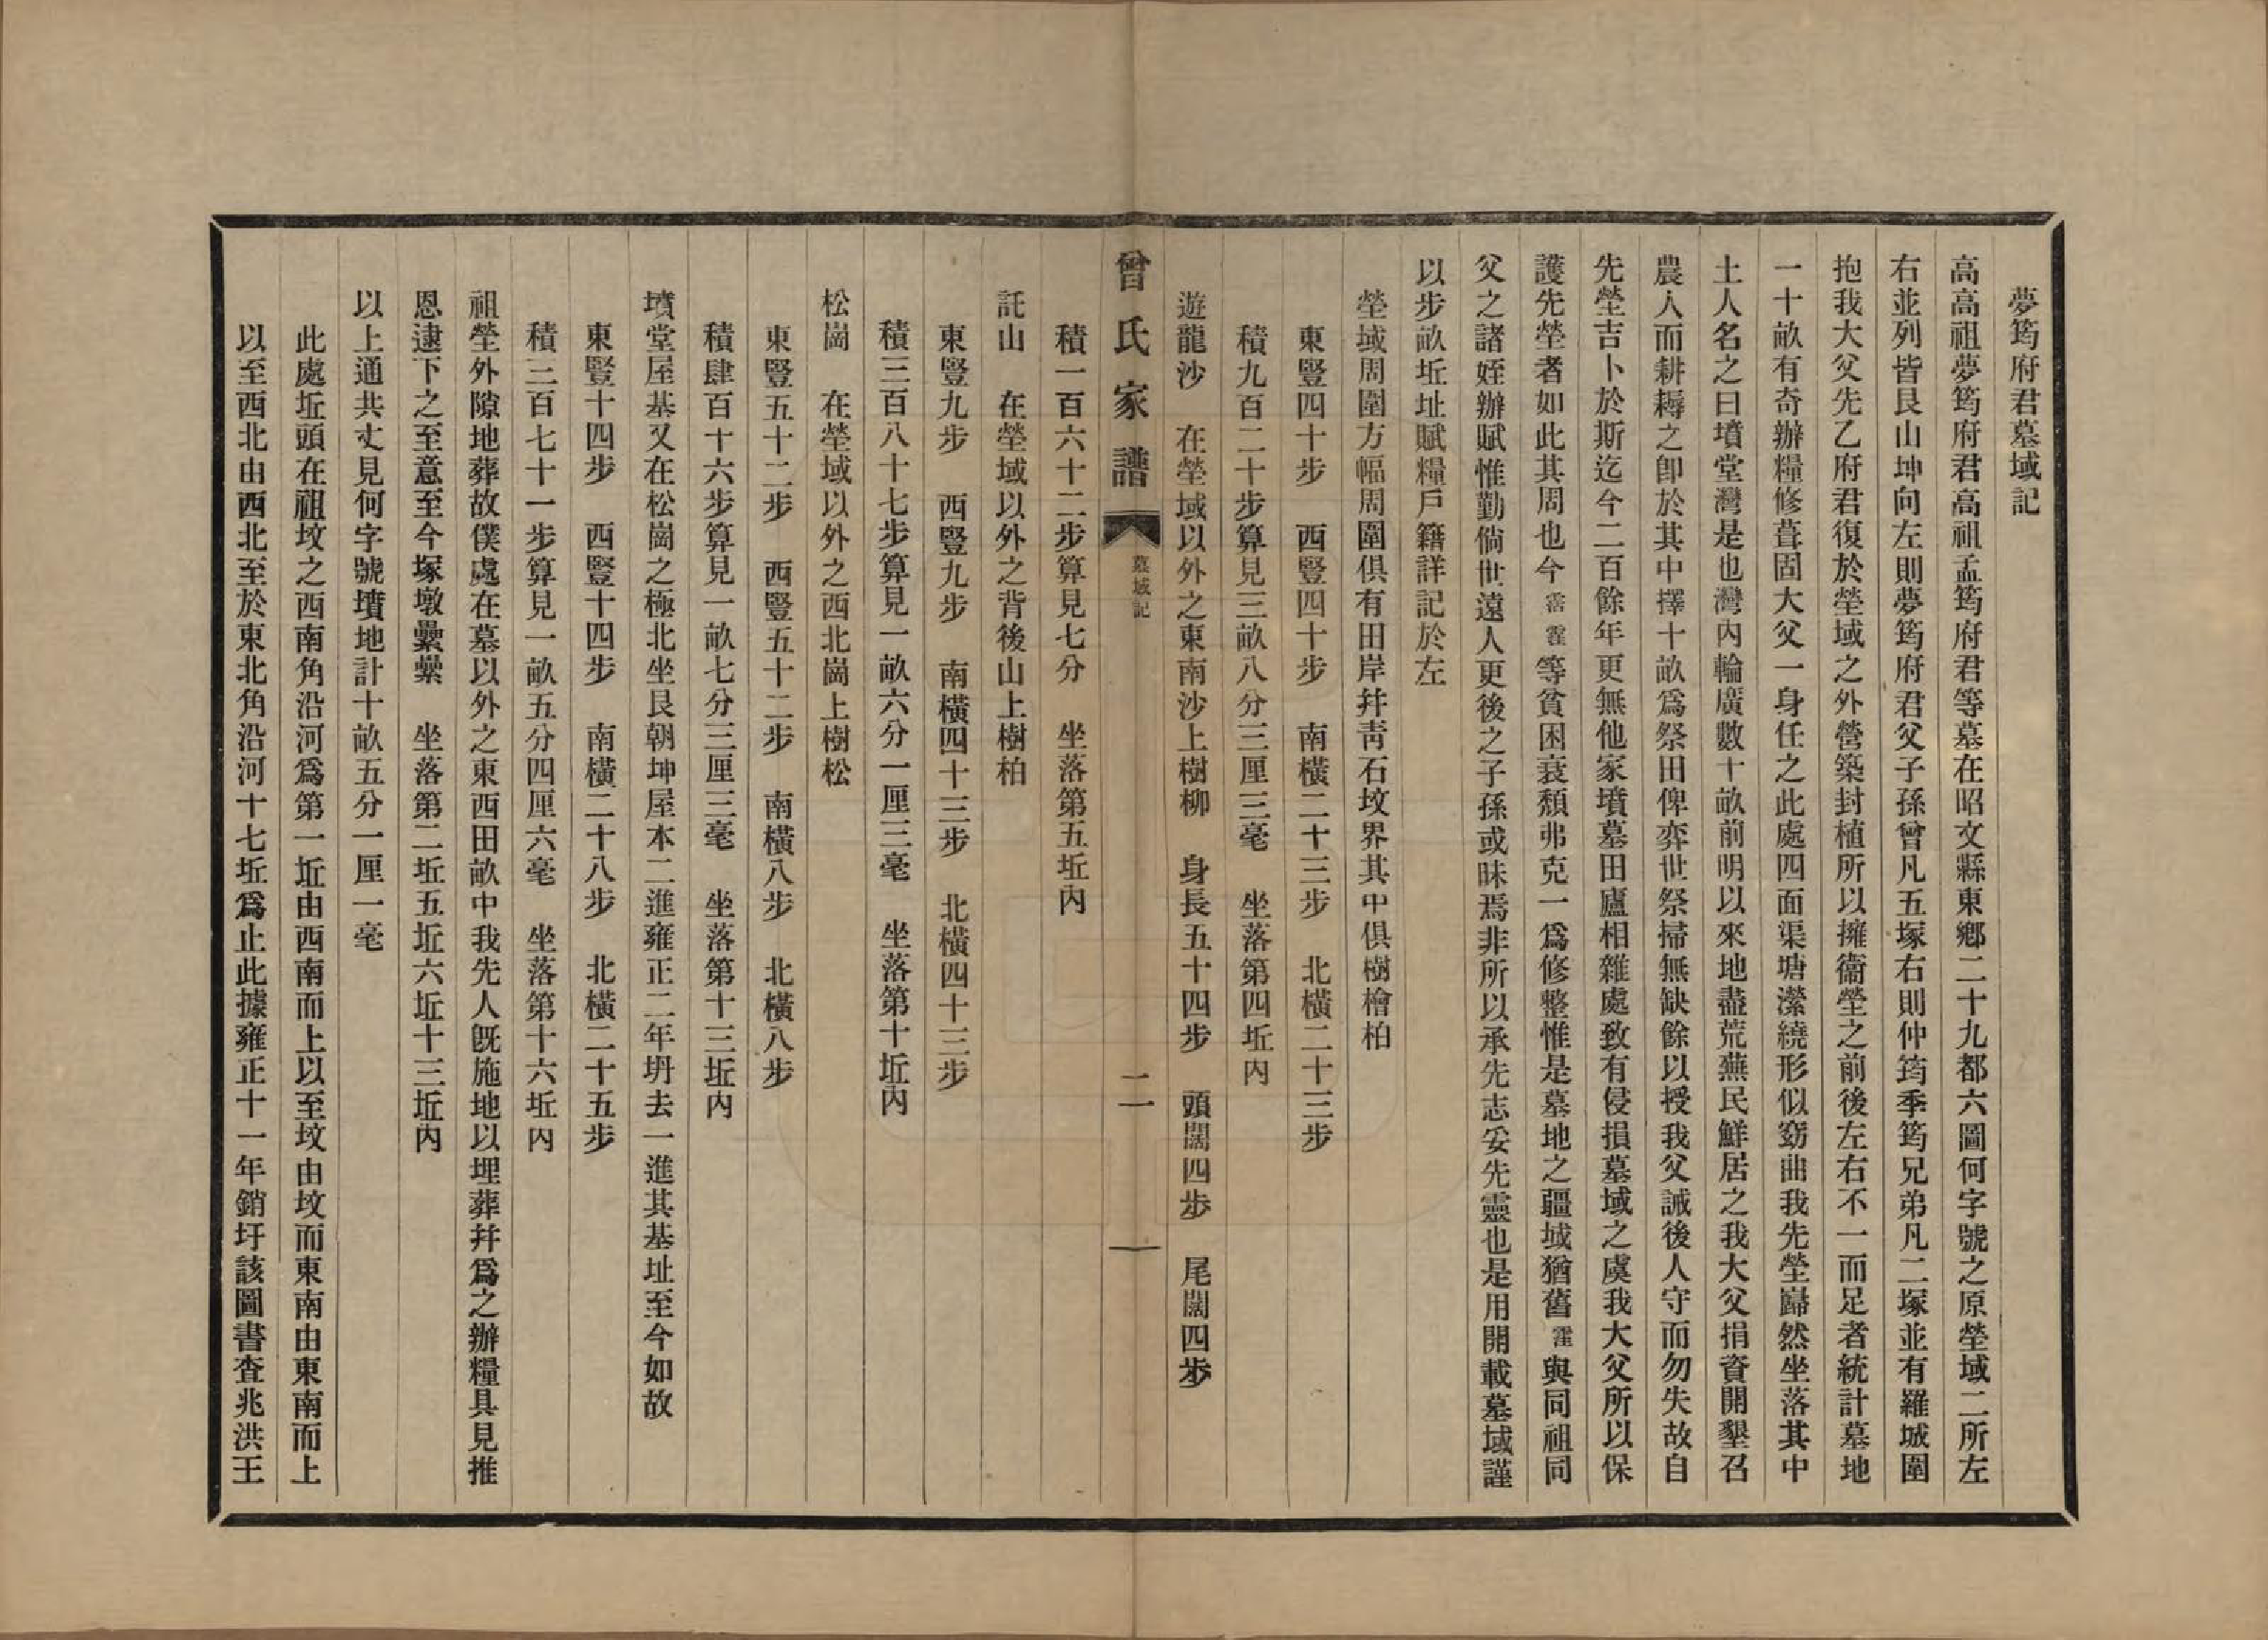 夢筠府君墓域記
高高祖夢筠府君高祖孟筠府君等墓在昭文縣東鄉二十九都六圖何字號之原塋域二所左
右並列皆艮山坤向左則夢筠府君父子孫曾凡五塚右則仲筠季筠兄弟凡二塚並有羅城圍
抱我大父先乙府君復於塋域之外營築封植所以擁衞塋之前後左右不一而足者統計墓地
一十畝有奇辦糧修葺固大父一身任之此處四面渠塘瀠繞形似窈曲我先塋巋然坐落其中
土人名之曰墳堂灣是也灣內輪廣數十畝前明以來地盡荒蕪民鮮居之我大父捐資開墾召
農人而耕耨之卽於其中擇十畝爲祭田俾弈世祭掃無缺餘以授我父誡後人守而勿失故自
先塋吉卜於斯迄今二百餘年更無他家墳墓田廬相雜處致有侵損墓域之虞我大父所以保
護先塋者如此其周也今 等貧困衰頹弗克一爲修整惟是墓地之疆域猶舊 與同祖同
父之諸姪辦賦惟勤倘世遠人更後之子孫或昧焉非所以承先志妥先靈也是用開載墓域謹
以步畝坵址賦糧戶籍詳記於左
塋域周圍方幅周圍俱有田岸幷靑石坟界其中俱樹檜柏
東豎四十步 西豎四十步 南橫二十三步 北橫二十三步
積九百二十步算見三畝八分三厘三毫 坐落第四坵內
遊龍沙 在塋域以外之東南沙上樹柳 身長五十四步 頭闊四步 尾闊四步
曾氏家譜 墓域記 二
積一百六十二步算見七分 坐落第五坵內
託山 在塋域以外之背後山上樹柏
東豎九步 西豎九步 南橫四十三步 北橫四十三步
積三百八十七步算見一畝六分一厘三毫 坐落第十坵內
松崗 在塋域以外之西北崗上樹松
東豎五十二步 西豎五十二步 南橫八步 北橫八步
積肆百十六步算見一畝七分三厘三毫 坐落第十三坵內
墳堂屋基又在松崗之極北坐艮朝坤屋本二進雍正二年坍去一進其基址至今如故
東豎十四步 西豎十四步 南橫二十八步 北橫二十五步
積三百七十一步算見一畝五分四厘六毫 坐落第十六坵內
祖塋外隙地葬故僕處在墓以外之東西田畝中我先人旣施地以埋葬幷爲之辦糧具見推
恩逮下之至意至今塚墩纍纍 坐落第二坵五坵六坵十三坵內
以上通共丈見何字號墳地計十畝五分一厘一毫
此處坵頭在祖坟之西南角沿河爲第一坵由西南而上以至坟由坟而東南由東南而上
以至西北由西北至於東北角沿河十七坵爲止此據雍正十一年銷圩該圖書查兆洪王